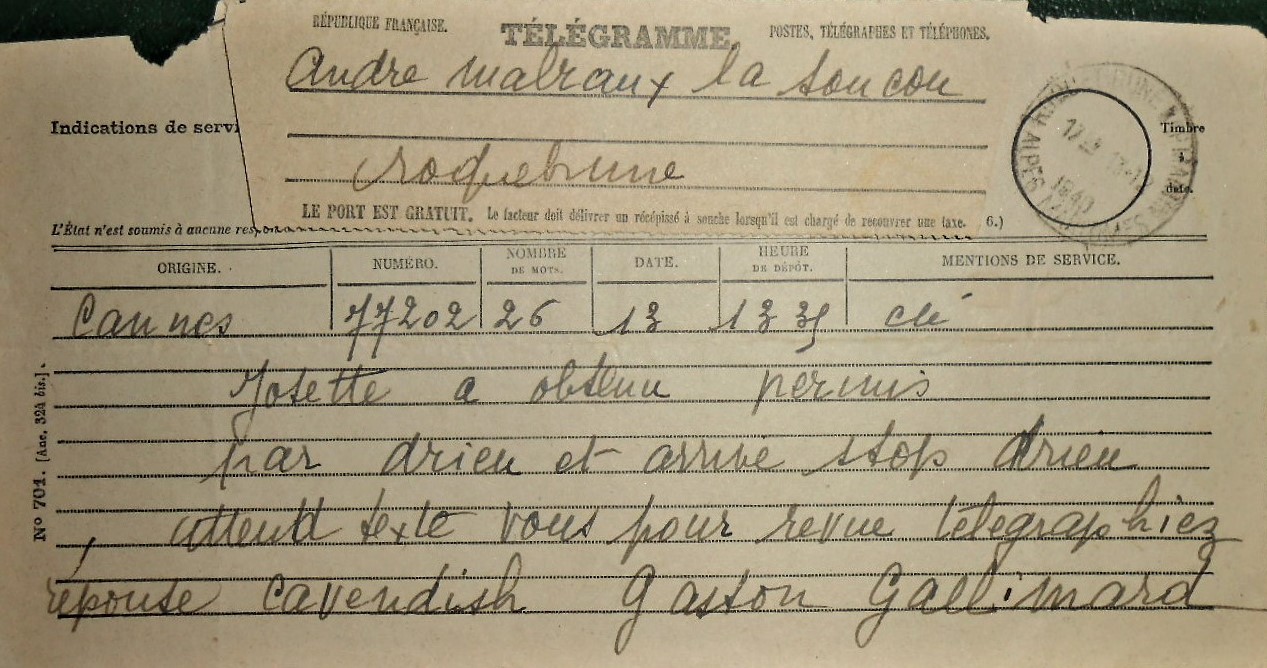 RÉPUBLIQUE FRANÇAISE. TÉLÉGRAMME. POSTES, TÉLÉGRAPHES ET TÉLÉPHONES.
Andre malraux la soucou
Indications de servi
Timbre
à
date.
roquebrune
LE PORT EST GRATUIT. Le facteur doit délivrer un récépissé à souche lorsqu'il est chargé de recouvrer une taxe. 6.)
L'État n'est soumis à aucune res
ORIGINE. NUMÉRO. NOMBRE DE MOTS. DATE. HEURE DE DÉPÔT. MENTIONS DE SERVICE.
Cannes 77202 26 13 13 35
Josette a obtenu permis
par drieu et arrive stop drieu
attend texte vous pour revue télégraphiez
réponse Cavendish Gaston Gallimard
N° 701. [Anc. 324 bis.].
1940